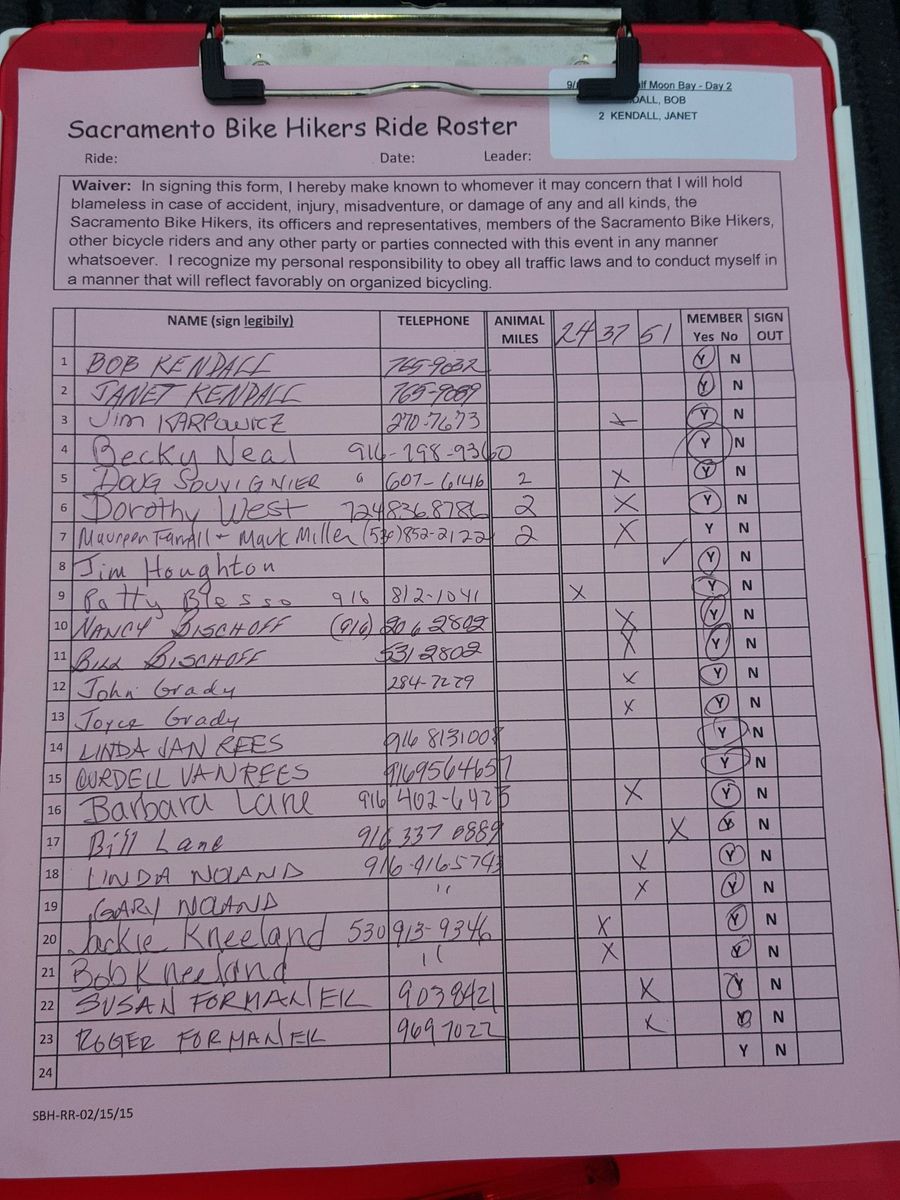 9/ lf Moon Bay - Day 2
DALL, BOB
2 KENDALL, JANET
Sacramento Bike Hikers Ride Roster
Ride: Date: Leader:
Waiver: In signing this form, I hereby make known to whomever it may concern that I will hold
blameless in case of accident, injury, misadventure, or damage of any and all kinds, the
Sacramento Bike Hikers, its officers and representatives, members of the Sacramento Bike Hikers,
other bicycle riders and any other party or parties connected with this event in any manner
whatsoever. I recognize my personal responsibility to obey all traffic laws and to conduct myself in
a manner that will reflect favorably on organized bicycling.
NAME (sign legibily) TELEPHONE ANIMAL MILES 24 37 51 MEMBER Yes No SIGN OUT
1 BOB KENDALL 765-9032 Y N
2 JANET KENDALL 765-9089 Y N
3 Jim KARPOWICZ 270-7673 X Y N
4 Becky Neal 916-798-9360 Y N
5 DOUG SOUVIGNIER 607-6146 2 X Y N
6 Dorothy West 7248368786 2 X Y N
7 Maureen + Mark Miller (530)852-2122 2 X Y N
8 Jim Houghton ✓ Y N
9 Patty Blesso 916 812-1041 X Y N
10 NANCY BISCHOFF (916) 206 2802 X Y N
11 BILL BISCHOFF 531 2802 X Y N
12 John Grady 284-7279 X Y N
13 Joyce Grady X Y N
14 LINDA VAN REES 916 8131008 Y N
15 CURDELL VAN REES 9169564657 Y N
16 Barbara Lane 916 402-6423 X Y N
17 Bill Lane 916 337 0889 X Y N
18 LINDA NOLAND 916-9165743 X Y N
19 GARY NOLAND " X Y N
20 Jackie Kneeland 530 913-9346 X Y N
21 Bob Kneeland " X Y N
22 SUSAN FORMANEK 9038421 X Y N
23 ROGER FORMANEK 9697022 X Y N
24 Y N
SBH-RR-02/15/15